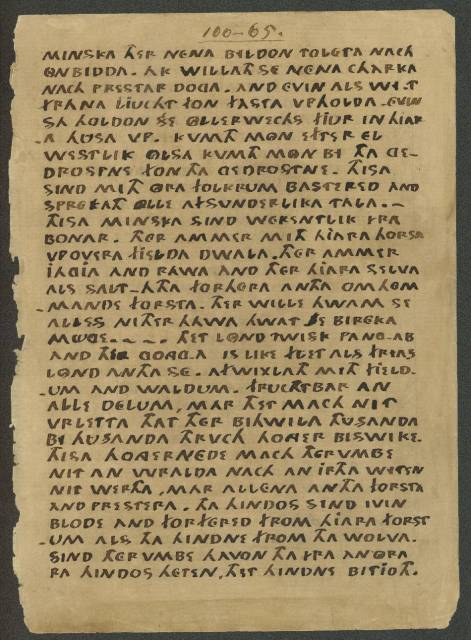 100-65.
MINSKA THER NENA BILDON TOLETA NACH
ONBIDDA. AK WILLATH SE NENA CHARKA
NACH PRESTAR DOGA. AND EVIN ALS WI.T
FRANA LJUCHT FON FASTA VPHOLDA. EVIN
SA HOLDON SE OLLERWECHS FJUR IN HJAR
-A HUSA VP. KVMTH MON EFTER EL
WESTLIK OLSA KVMTH MON BI THA GE-
DROSTNE FON THA GEDROSTNE. THISA
SIND MITH ORA FOLKRUM BASTERED AND
SPREKATH OLLE AFSUNDERLIKA TALA.~
THISA MINSKA SIND WERENTLIK IRA
BONAR. THER AMMER MITH HJARA HORSA
VPOVERA FJELDA DWALA. THER AMMER
JAGJA AND RAWA AND THER HJARA SELVA
ALS SALT-ATHA FORHERA ANTHA OMHEM
-MANDE FORSTA. THER WILLE HWAM SE
ALLES NITHER HAWA HWAT SE BIREKA
MUGE.~~~ THET LOND TWISK PANG-AB
AND THER GONGGA IS LIKE FLET ALS FRYAS
LOND ANTHA SE. AFWIXLATH MITH FJELD-
-UM AND WALDUM. FRUCHTBAR AN
ALLE DELUM, MAR THET MACH NIT
VRLETTA THAT THER BIHWILA THUSANDA
BI THUSANDA THRVCH HONGER BISWIKE.
THISA HONGERNEDE MACH THERVMBE
NIT AN WRALDA NACH AN IRTHA WYTEN
NIT WERTHA, MAR ALLENA ANTHA FORSTA
AND PRESTERA. THA HINDOS SIND IVIN
BLODE AND FORFERED FROM HJARA FORST
-UM ALS THA HINDNE FROM THA WOLVA.
SIND THERVMBE HAVON THA IRA AN ORA
RA HINDOS HETEN, THET HINDNE BITJOTH.